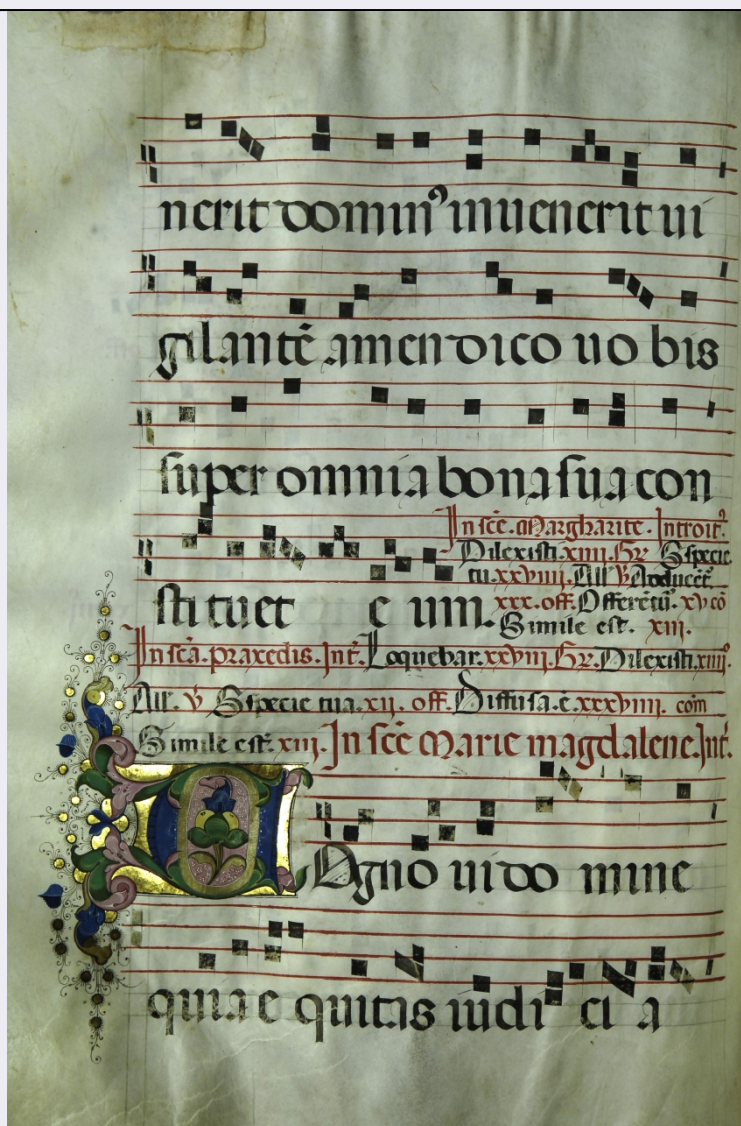 nerit domin⁹ inuenerit ui
gilantē amen dico uo bis
super omnia bona sua con
In sce. Margharite. Introit᷎.
Dilexisti. xiiii. Gr̄. Specie
tu. xxviiii. All' ℣ Adducent̄.
stituet e um. xxx. off. Offerētū. xv cō
Simile est. xiii.
In sc̄a. praxedis. Int̄. Loquebar. xxviii. Gr̄. Dilexisti. xiiii.
All. ℣ Specie tua. xii. off. Diffusa. ē. xxxviiii. com̄
Simile est. xiii. In sc̄e Marie magdalene. Int̄.
Cogno ui do mine
quia e quitas iudi ci a